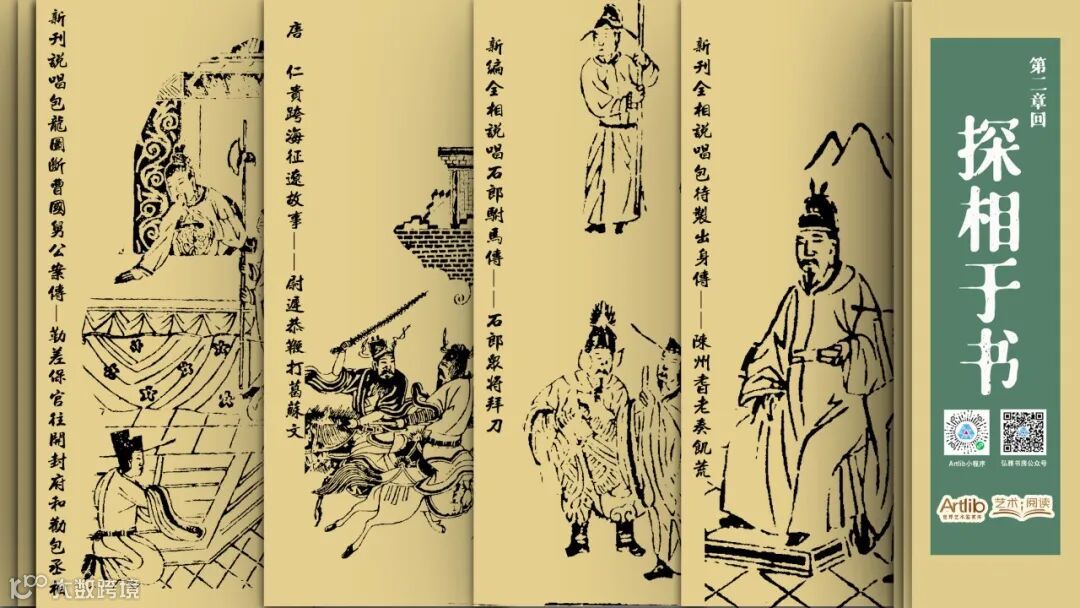 新刊説唱包龍圖斷曹國舅公案傳—勅差保官往開封府和勸包丞相
唐 仁貴跨海征遼故事——尉遲恭鞭打葛蘇文
新編全相説唱石郎駙馬傳——石郎衆將拜刀
新刊全相説唱包待製出身傳——陳州耆老奏飢荒
第二章回
探相于书
Artlib小程序
弘雅书房公众号
Artlib
世界艺术鉴赏库
艺术·阅读
大数跨境